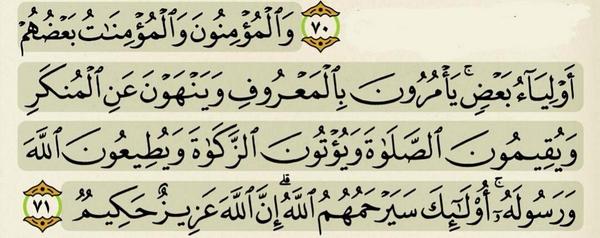 ٧٠ وَٱلۡمُؤۡمِنُونَ وَٱلۡمُؤۡمِنَٰتُ بَعۡضُهُمۡ
أَوۡلِيَآءُ بَعۡضٖۚ يَأۡمُرُونَ بِٱلۡمَعۡرُوفِ وَيَنۡهَوۡنَ عَنِ ٱلۡمُنكَرِ
وَيُقِيمُونَ ٱلصَّلَوٰةَ وَيُؤۡتُونَ ٱلزَّكَوٰةَ وَيُطِيعُونَ ٱللَّهَ
وَرَسُولَهُۥٓۚ أُوْلَٰٓئِكَ سَيَرۡحَمُهُمُ ٱللَّهُۗ إِنَّ ٱللَّهَ عَزِيزٌ حَكِيمٞ ٧١